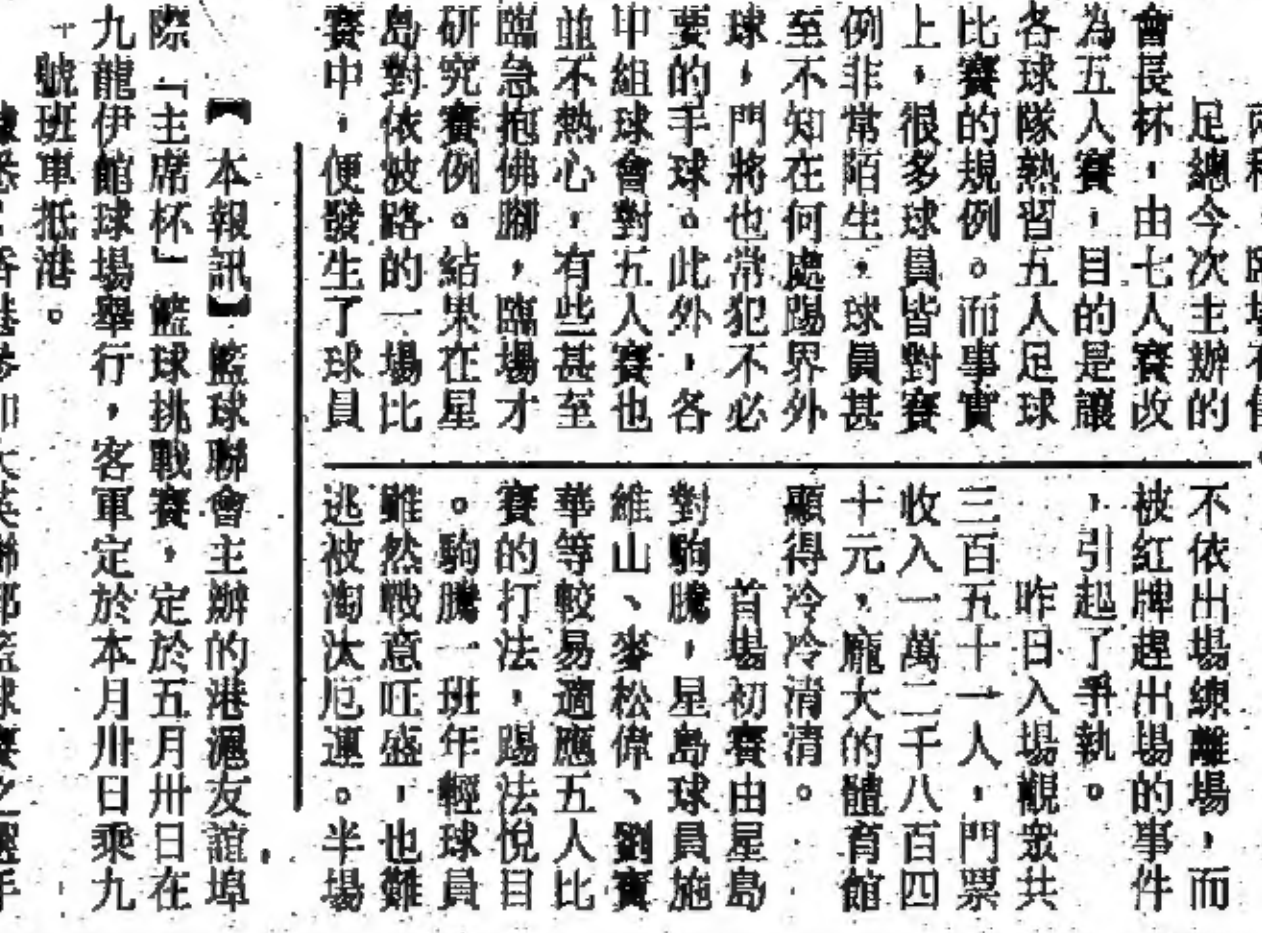 足總今次主辦的
會長杯，由七人賽改
為五人賽，目的是讓
各球隊熱習五人足球
比賽的規例。而事實
上，很多球員皆對賽
例非常陌生，球員甚
至不知在何處踢界外
球，門將也常犯不必
要的手球。此外，各
甲組球會對五人賽也
並不熱心，有些甚至
臨急抱佛腳，臨場才
研究賽例。結果在星
島對依波路的一場比
賽中，便發生了球員
不依出場練離場，而
被紅牌趕出場的事件
，引起了爭執。
昨日入場觀眾共
三百五十一人，門票
收入一萬二千八百四
十元，龐大的體育館
顯得冷冷清清。
首場初賽由星島
對駒騰，星島球員施
維山、麥松偉、劉寶
華等較易適應五人比
賽的打法，踢法悅目
。駒騰一班年輕球員
雖然戰意旺盛，也難
逃被淘汰厄運。半場
【本報訊】籃球聯會主辦的港滬友誼埠
際「主席杯」籃球挑戰賽，定於五月卅日在
九龍伊館球場舉行，客軍定於本月卅日乘九
十號班車抵港。